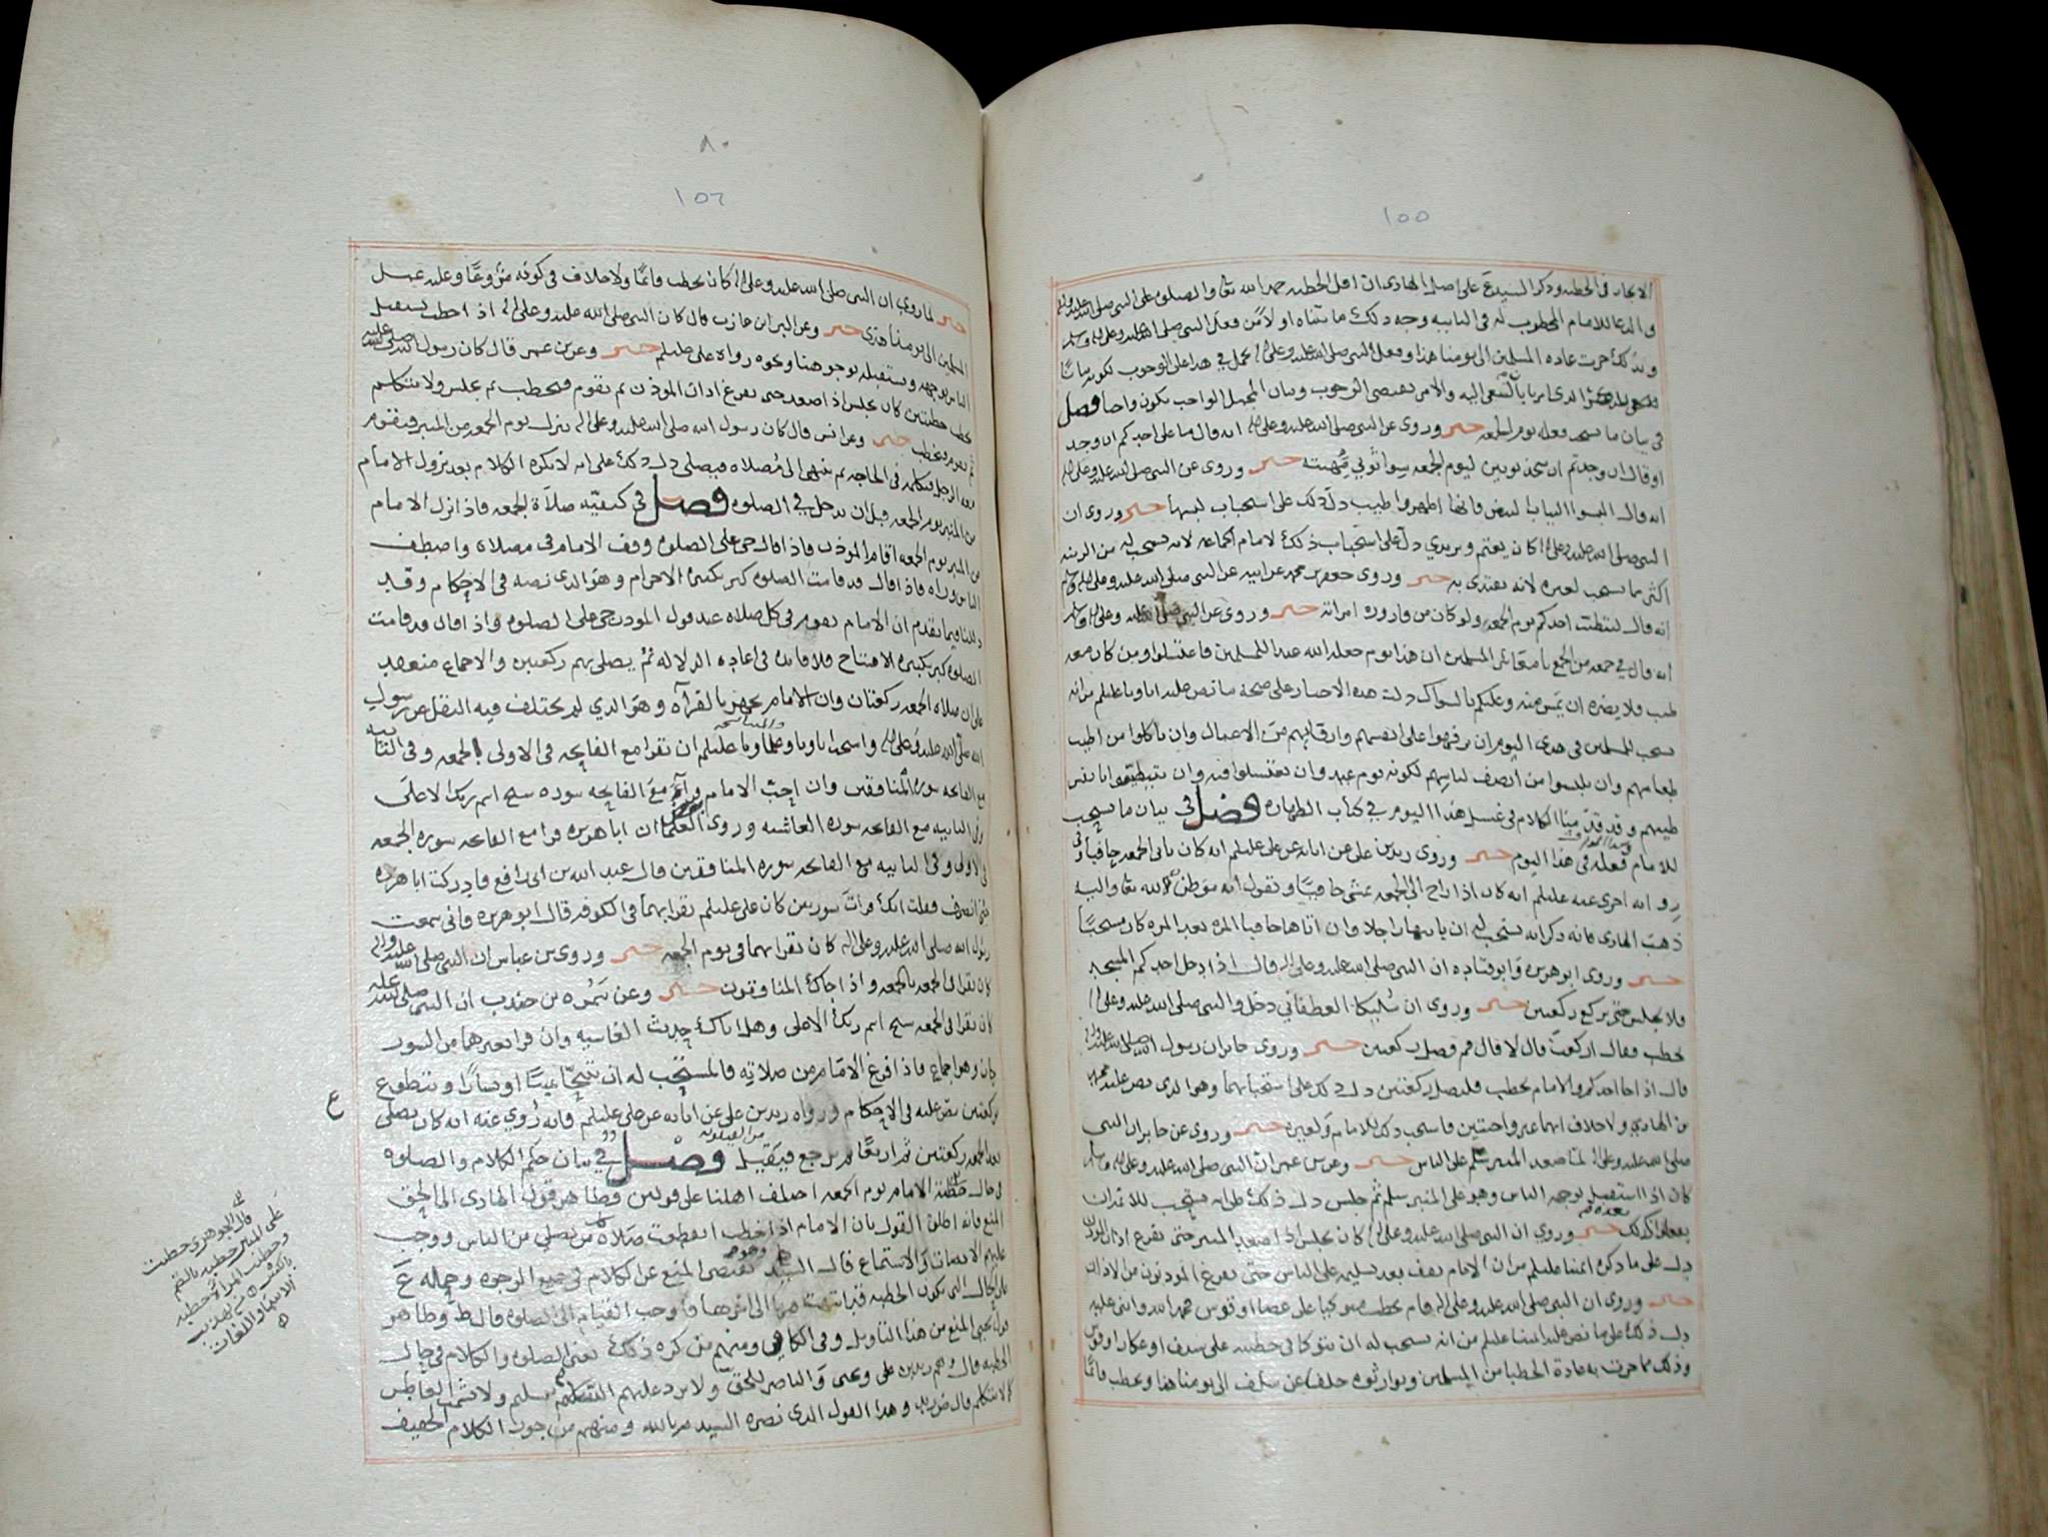 ١٥٥
الايجاز في الخطبه وذكر السيدع على اصل الهادي ان اقل الخطبه حمد الله تعا والصلوه على النبي صلى الله عليه واله
والدعا للامام المخطوب له في الثانيه وجه ذلك ما بيناه اولا من فعل النبي صلى الله عليه وعلى اله وسلم
وبذلك جرت عاده المسلمين الى يومنا هذا وفعل النبي صلى الله عليه وعلى اله يحمل في هذا على الوجوب لكونه بيانًا
الذي امرنا بالسعي اليه والامر يقتضي الوجوب وبيان المجمل الواجب يكون واجبا فصل
في بيان ما يستحب فعله يوم الجمعه خبر وروي عن النبي صلى الله عليه وعلى اله انه قال ما على احدكم ان وجد
او قال ان وجدتم ان يتخذ ثوبين ليوم الجمعه سوا ثوبي مهنته خبر وروي عن النبي صلى الله عليه وعلى اله
انه قال البسوا الثياب البيض فانها اطهر واطيب دل ذلك على استحباب لبسها خبر وروي ان
النبي صلى الله عليه وعلى اله كان يعتم ويرتدي دل على استحباب ذلك لامام الجماعه لانه يستحب له من الزينه
اكثر ما يستحب لغيره لانه يقتدى به خبر وروى جعفر بن محمد عن ابيه عن النبي صلى الله عليه وعلى اله وسلم
انه قال ليتطيب احدكم يوم الجمعه ولو كان من قاروره امراته خبر وروي عن النبي صلى الله عليه وعلى اله وسلم
انه قال في جمعه من الجمع يا معاشر المسلمين ان هذا يوم جعله الله عيدا للمسلمين فاغتسلوا ومن كان معه
طيب فلا يضره ان يمس منه وعليكم بالسواك دلت هذه الاخبار على صحة ما نص عليه اباونا عليلم من انه
يستحب للمسلمين في هذا اليوم ان يرفهوا على انفسهم وارقايهم من الاعمال وان ياكلوا من اطيب
طعامهم وان يلبسوا من انصف لباسهم لكونه يوم عيد وان يغتسلوا فيه وان يتطيبوا بانفس
طيبهم وقد قدمنا الكلام في غسل هذا اليوم في كتاب الطهاره فصل في بيان ما يستحب
للامام فعله في هذا اليوم خبر وروى زيد بن علي عن ابايه عن علي عليلم انه كان ياتي الجمعه حافيا
روايه اخرى عنه عليلم انه كان اذا راح الى الجمعه مشى حافيًا ويقول انه موطن لله تعا واليه
ذهب الهادي فانه ذكر انه يستحب له ان ياتيها راجلا وان اتاها حافيا المره بعد المره كان مستحبًا
خبر وروى ابو هريره وابو قتاده ان النبي صلى الله عليه وعلى اله قال اذا دخل احدكم المسجد
فلا يجلس حتى يركع ركعتين خبر وروي ان سُليكا الغطفاني دخل والنبي صلى الله عليه وعلى اله
يخطب فقال اركعت قال لا قال قم فصل ركعتين خبر وروى جابر ان رسول الله صلى الله عليه واله
قال اذا جا احدكم والامام يخطب فليصل ركعتين دل ذلك على استحبابهما وهو الذي نص عليه محمد
بن الهادي ولا خلاف انهما غير واجبتين فاستحب ذلك للامام ولغيره خبر وروي عن جابر ان النبي
صلى الله عليه وعلى اله لما صعد المنبر سلم على الناس خبر وعن بن عمر ان النبي صلى الله عليه وعلى اله وسلم
كان اذا استقبل بوجهه الناس وهو على المنبر سلم ثم جلس دل ذلك على انه يستحب للائمة ان
يفعلوا كذلك خبر وروي ان النبي صلى الله عليه وعلى اله كان يجلس اذا صعد المنبر حتى يفرغ اذان الموذن
دل على ما ذكره ائمتنا عليلم من ان الامام يقف بعد تسليمه على الناس حتى يفرغ الموذنون من الاذان
خبر وروي ان النبي صلى الله عليه وعلى اله قام يخطب متوكيا على عصا او قوس فحمد الله واثنى عليه
دل ذلك على ما نص عليه ائمتنا عليلم من انه يستحب له ان يتوكا في خطبته على سيف او عكاز او قوس
وذلك مما جرت به عادة الخطبا من المسلمين وتوارثوه خلف عن سلف الى يومنا هذا ويخطب قائمًا
٨٠
١٥٦
خبر لما روي ان النبي صلى الله عليه وعلى اله كان يخطب قائمًا ولا خلاف في كونه مشروعًا وعليه عمل
المسلمين الى يومنا هذا خبر وعن البرا بن عازب قال كان النبي صلى الله عليه وعلى اله اذا خطب يستقبل
الناس بوجهه ونستقبله بوجوهنا ونحوه رواه علي عليلم خبر وعن بن عمر قال كان رسول الله صلى الله عليه
يخطب خطبتين كان يجلس اذا صعد حتى يفرغ اذان الموذن ثم يقوم فيخطب ثم يجلس ولا يتكلم
ثم يقوم فيخطب خبر وعن انس قال كان رسول الله صلى الله عليه وعلى اله ينزل يوم الجمعه من المنبر فيقوم
معه الرجل فيكلمه في الحاجه ثم ينتهي الى مُصلاه فيصلي دل ذلك على انه لا يكره الكلام بعد نزول الامام
من المنبر يوم الجمعه قبل ان يدخل في الصلوه فصل في كيفيّه صلاة الجمعه فاذا نزل الامام
من المنبر يوم الجمعه اقام الموذن فاذا قال حي على الصلوه وقف الامام في مصلاه واصطف
الناس وراه فاذا قال قد قامت الصلوه كبر تكبيرة الاحرام وهو الذي نصه في الاحكام وقد
دللنا فيما تقدم ان الامام يقوم في كل صلاه عند قول الموذن حي على الصلوه واذا قال قد قامت
الصلوه كبر تكبيرة الافتتاح فلا فايده في اعاده الدلاله ثم يصلي بهم ركعتين والاجماع منعقد
على ان صلاه الجمعه ركعتان وان الامام يجهر بالقرآه وهو الذي لم يختلف فيه النقل عن رسول
الله صلى الله عليه وعلى اله واستحب اباونا عليلم ان يقرا مع الفاتحه في الاولى الجمعه وفي الثانيه
مع الفاتحه سورة المنافقين وان احب الامام قرا مع الفاتحه سوره سبح اسم ربك الاعلى
وفي الثانيه مع الفاتحه سوره الغاشيه وروى ان ابا هريره قرا مع الفاتحه سوره الجمعه
في الاولى وفي الثانيه مع الفاتحه سوره المنافقين قال عبد الله بن ابي رافع فادركت ابا هريره
حين انصرف فقلت انك قرات سورتين كان علي عليلم يقرا بهما في الكوفه قال ابو هريره فاني سمعت
رسول الله صلى الله عليه وعلى اله كان يقرا بهما في يوم الجمعه خبر وروى بن عباس ان النبي صلى الله عليه واله
كان يقرا في الجمعه بالجمعه واذا جاك المنافقون خبر وعن سمُره بن جندب ان النبي صلى الله عليه
كان يقرا في الجمعه سبح اسم ربك الاعلى وهل اتاك حديث الغاشيه وان قرا بغيرهما من السور
جاز وهو اجماع فاذا فرغ الامام من صلاته فالمستحب له ان يتنحّا يمينًا او يسارًا ويتطوع
بركعتين نص عليه في الاحكام ورواه زيد بن علي عن ابايه عن علي عليلم فانه رُوي عنه انه كان يصلي
بعد الجمعه ركعتين ثم اربعًا ثم يرجع فيقيل فصل في بيان حكم الكلام والصلوه
في حال خطبه الامام يوم الجمعه اختلف اهلنا على قولين فظاهر قول الهادي الى الحق
المنع فانه اطلق القول بان الامام اذا خطب انقطعت صلاه من يصلي من الناس ووجب
عليهم الانصات والاستماع قال السيد يقتضي المنع عن الكلام في جميع الوجوه
قول يحيى المنع من هذا التاويل وفي الكافي ومنهم من كره ذلك يعني الصلوه والكلام في حال
الخطبه قال وهم زيد بن علي ويحيى والناصر للحق ولا يرد عليهم
وهذا القول الذي نصره السيد م بالله ومنهم من جوز الكلام الخفيف
ع
قال الجوهري خطبت
على المنبر خطبه بالضم
وخطبت المراة خطبه
بالكسر من تهذيب
الاسما واللغات